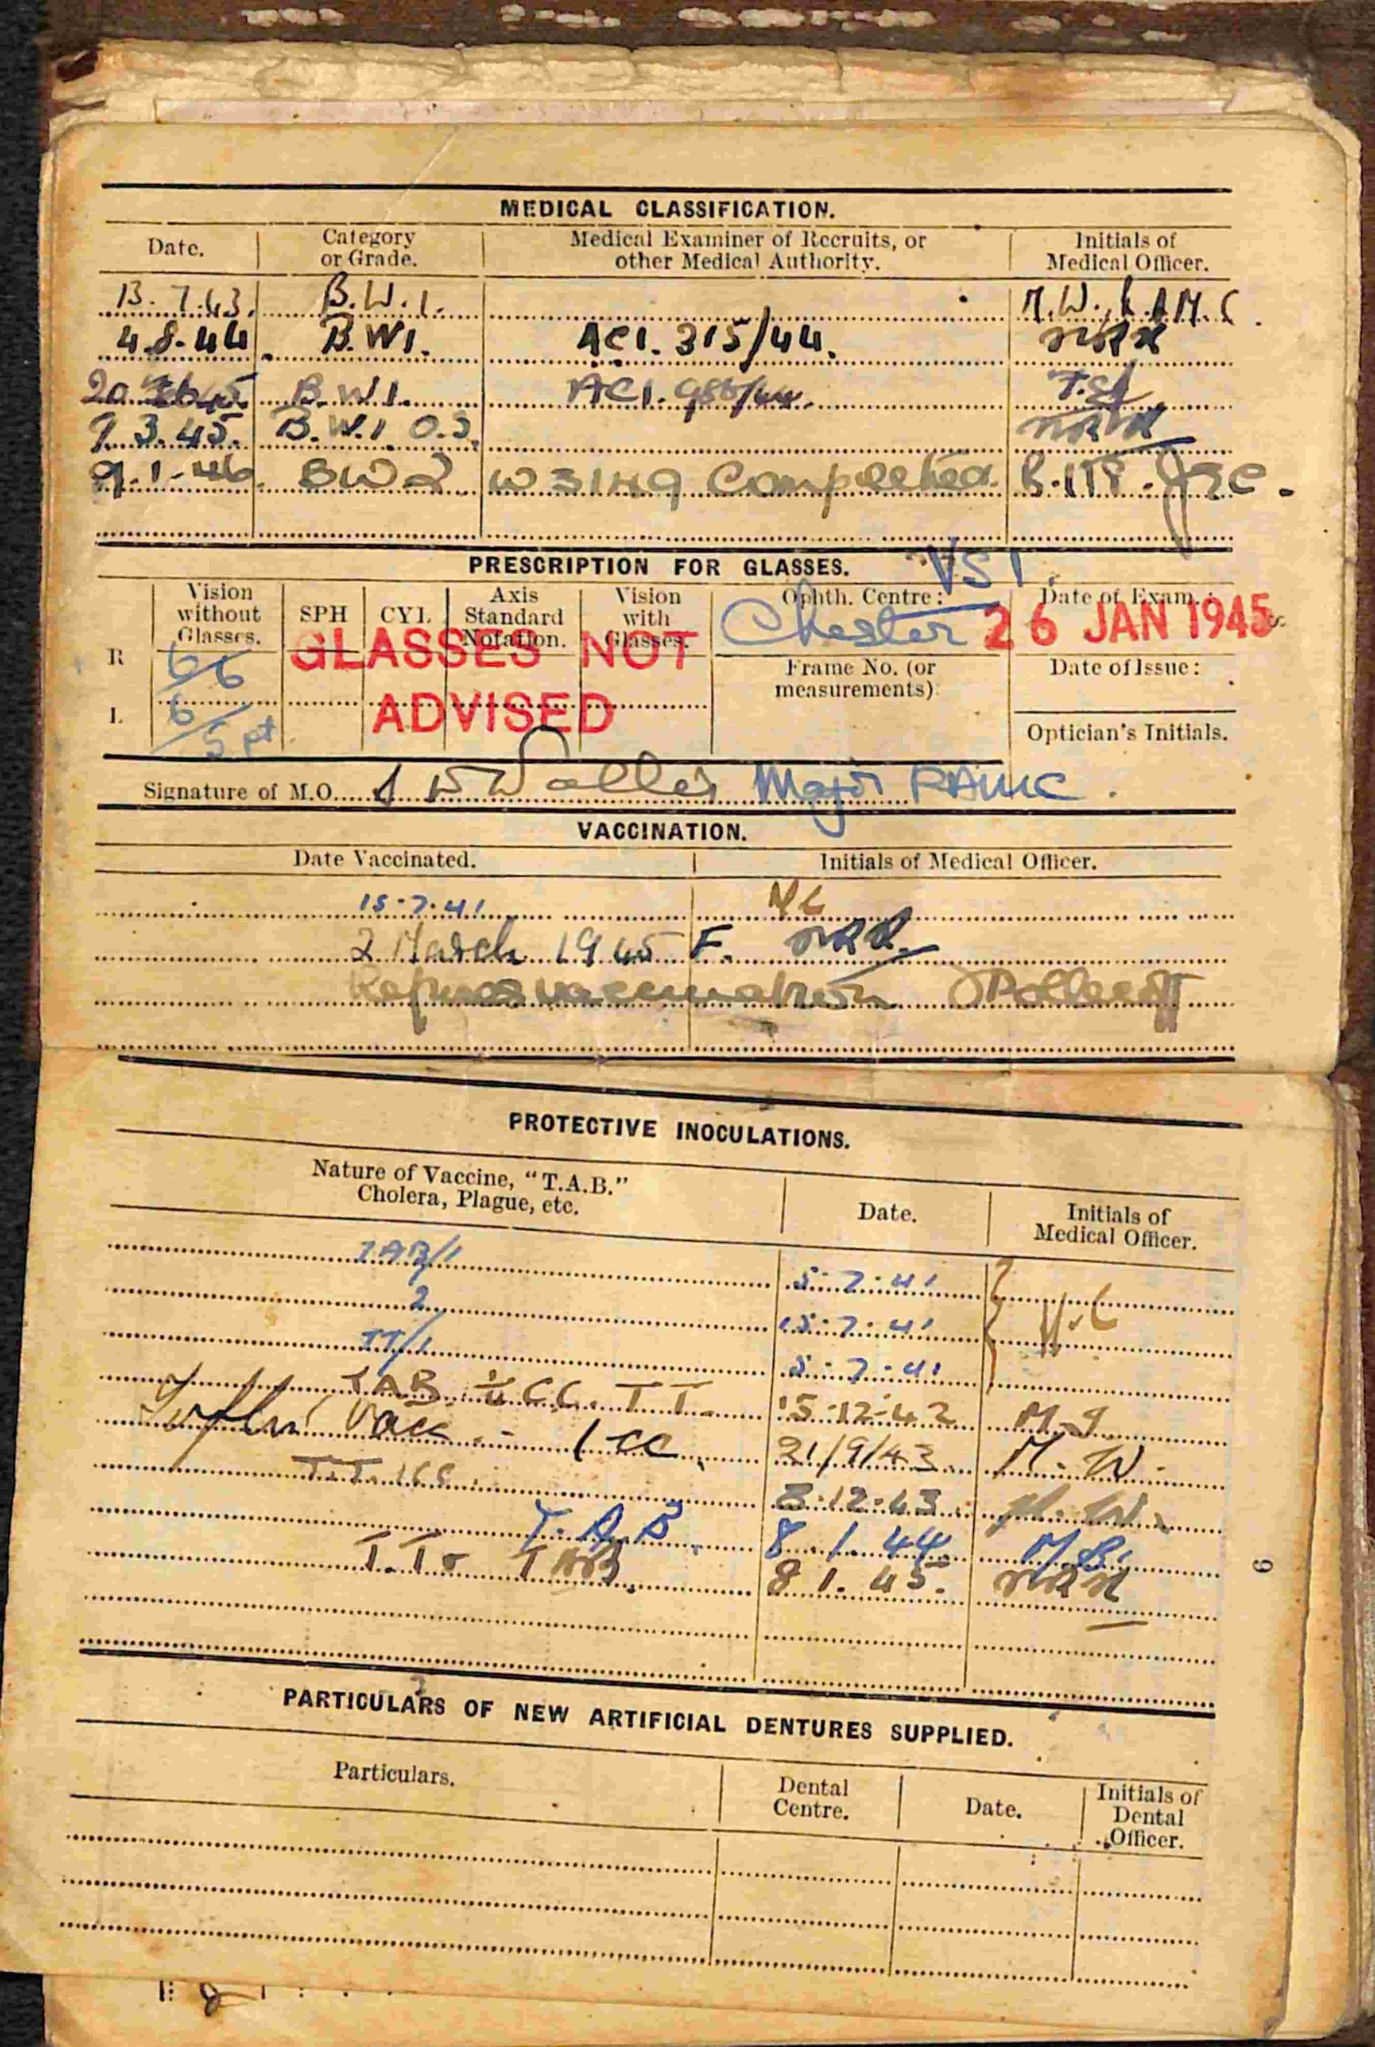 MEDICAL CLASSIFICATION.
Date. Category or Grade. Medical Examiner of Recruits, or other Medical Authority. Initials of Medical Officer.
13.7.43. B.W.1. M.W.
4.8.44 B.W1. AC1. 315/44. NRR
B.W.1. AC1.
9.3.45. B.W.1. O.S. NRR
9.1.46 BW2 W3149 Completed.
PRESCRIPTION FOR GLASSES. VS1.
Vision without Glasses. SPH CYL Axis Standard Notation. Vision with Glasses. Ophth. Centre: Chester Date of Exam.: 26 JAN 1945
GLASSES NOT
R 6/6 Frame No. (or measurements) Date of Issue:
ADVISED
L 6/5 pt Optician's Initials.
Signature of M.O. Major RAMC.
VACCINATION.
Date Vaccinated. Initials of Medical Officer.
15.7.41
2 March 1945 F. NRR
Refuses vaccination
PROTECTIVE INOCULATIONS.
Nature of Vaccine, "T.A.B." Cholera, Plague, etc. Date. Initials of Medical Officer.
TAB/1 5.7.41
2 15.7.41
TT/1 5.7.41
TAB. ¼ CC. TT. 15.12.42
Vacc. - 1 cc. 21/9/43. M.W.
T.T. 1cc. 3.12.43. M.W.
T.A.B. 8.1.44. M.B.
T.T. TAB. 8 1.45. NRR
6
PARTICULARS OF NEW ARTIFICIAL DENTURES SUPPLIED.
Particulars. Dental Centre. Date. Initials of Dental Officer.